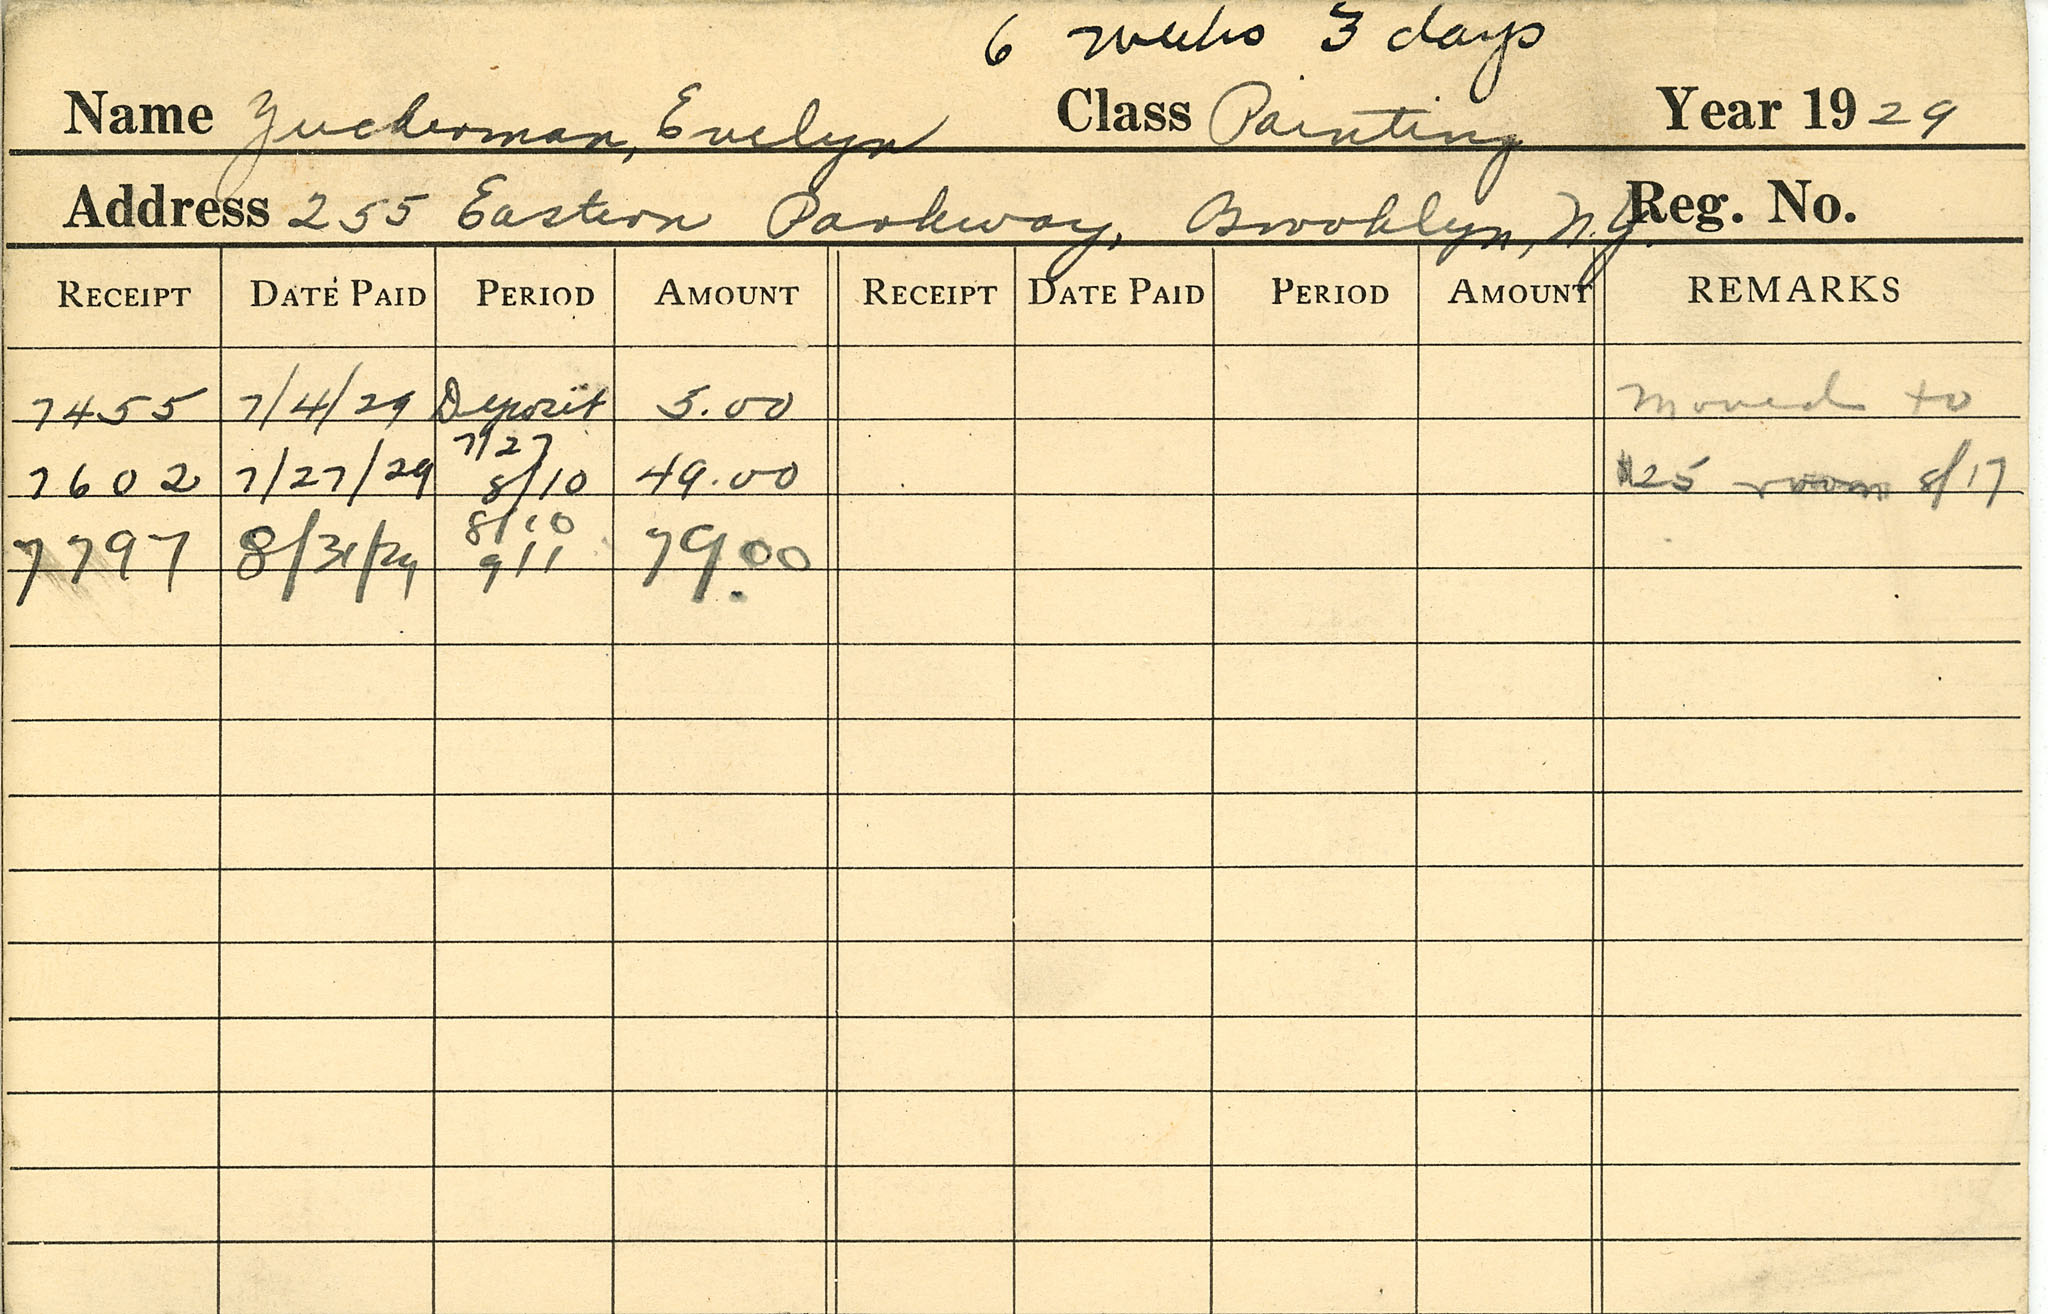 6 weeks 3 days
Name Zuckerman, Evelyn Class Painting Year 1929
Address 255 Eastern Parkway, Brooklyn, N.Y. Reg. No.
RECEIPT DATE PAID PERIOD AMOUNT RECEIPT DATE PAID PERIOD AMOUNT REMARKS
7455 7/4/29 Deposit 5.00 Moved to
7/27
7602 7/27/29 8/10 49.00 $25 room 8/17
8/10
7797 8/31/29 9/1 79.00